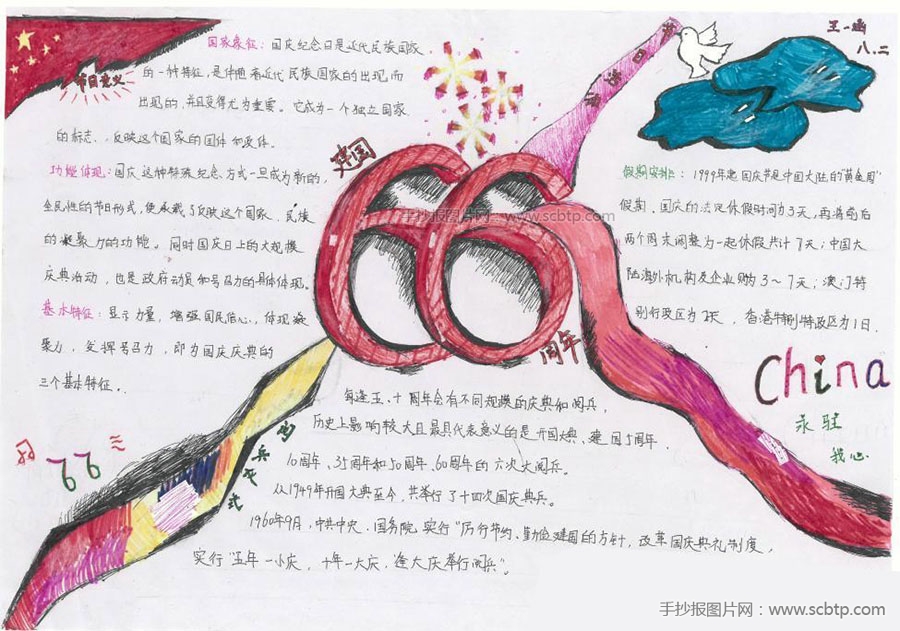 王一涵
八.二
节日意义
国家象征：国庆纪念日是近代民族国家
的一种特征，是伴随着近代民族国家的出现而
出现的，并且变得尤为重要。它成为一个独立国家
的标志，反映这个国家的国体和政体。
功能体现：国庆这种特殊纪念方式一旦成为新的，
全民性的节日形式，便承载了反映这个国家、民族
的凝聚力的功能。同时国庆日上的大规模
庆典活动，也是政府动员和号召力的具体体现。
基本特征：显示力量，增强国民信心，体现凝
聚力，发挥号召力，即为国庆庆典的
三个基本特征。
建国
66
周年
手抄报图片网：www.scbtp.com
假期安排：1999年起国庆节是中国大陆的"黄金周"
假期、国庆的法定休假时间为3天，再将前后
两个周末调整为一起休假共计7天；中国大
陆海外机构及企业购3～7天；澳门特
别行政区为2天，香港特别特政区为1日.
China
永驻
我心
66
阅兵仪式
每逢五、十周年会有不同规模的庆典和阅兵，
历史上影响较大且最具代表意义的是开国大典、建国5周年、
10周年、35周年和50周年、60周年的六次大阅兵。
从1949年开国大典至今，共举行了十四次国庆典兵。
1960年9月，中共中央、国务院，实行"厉行节约、勤俭建国的方针，改革国庆典礼制度，
实行"五年一小庆，十年一大庆，逢大庆举行阅兵"。
手抄报图片网：www.scbtp.com